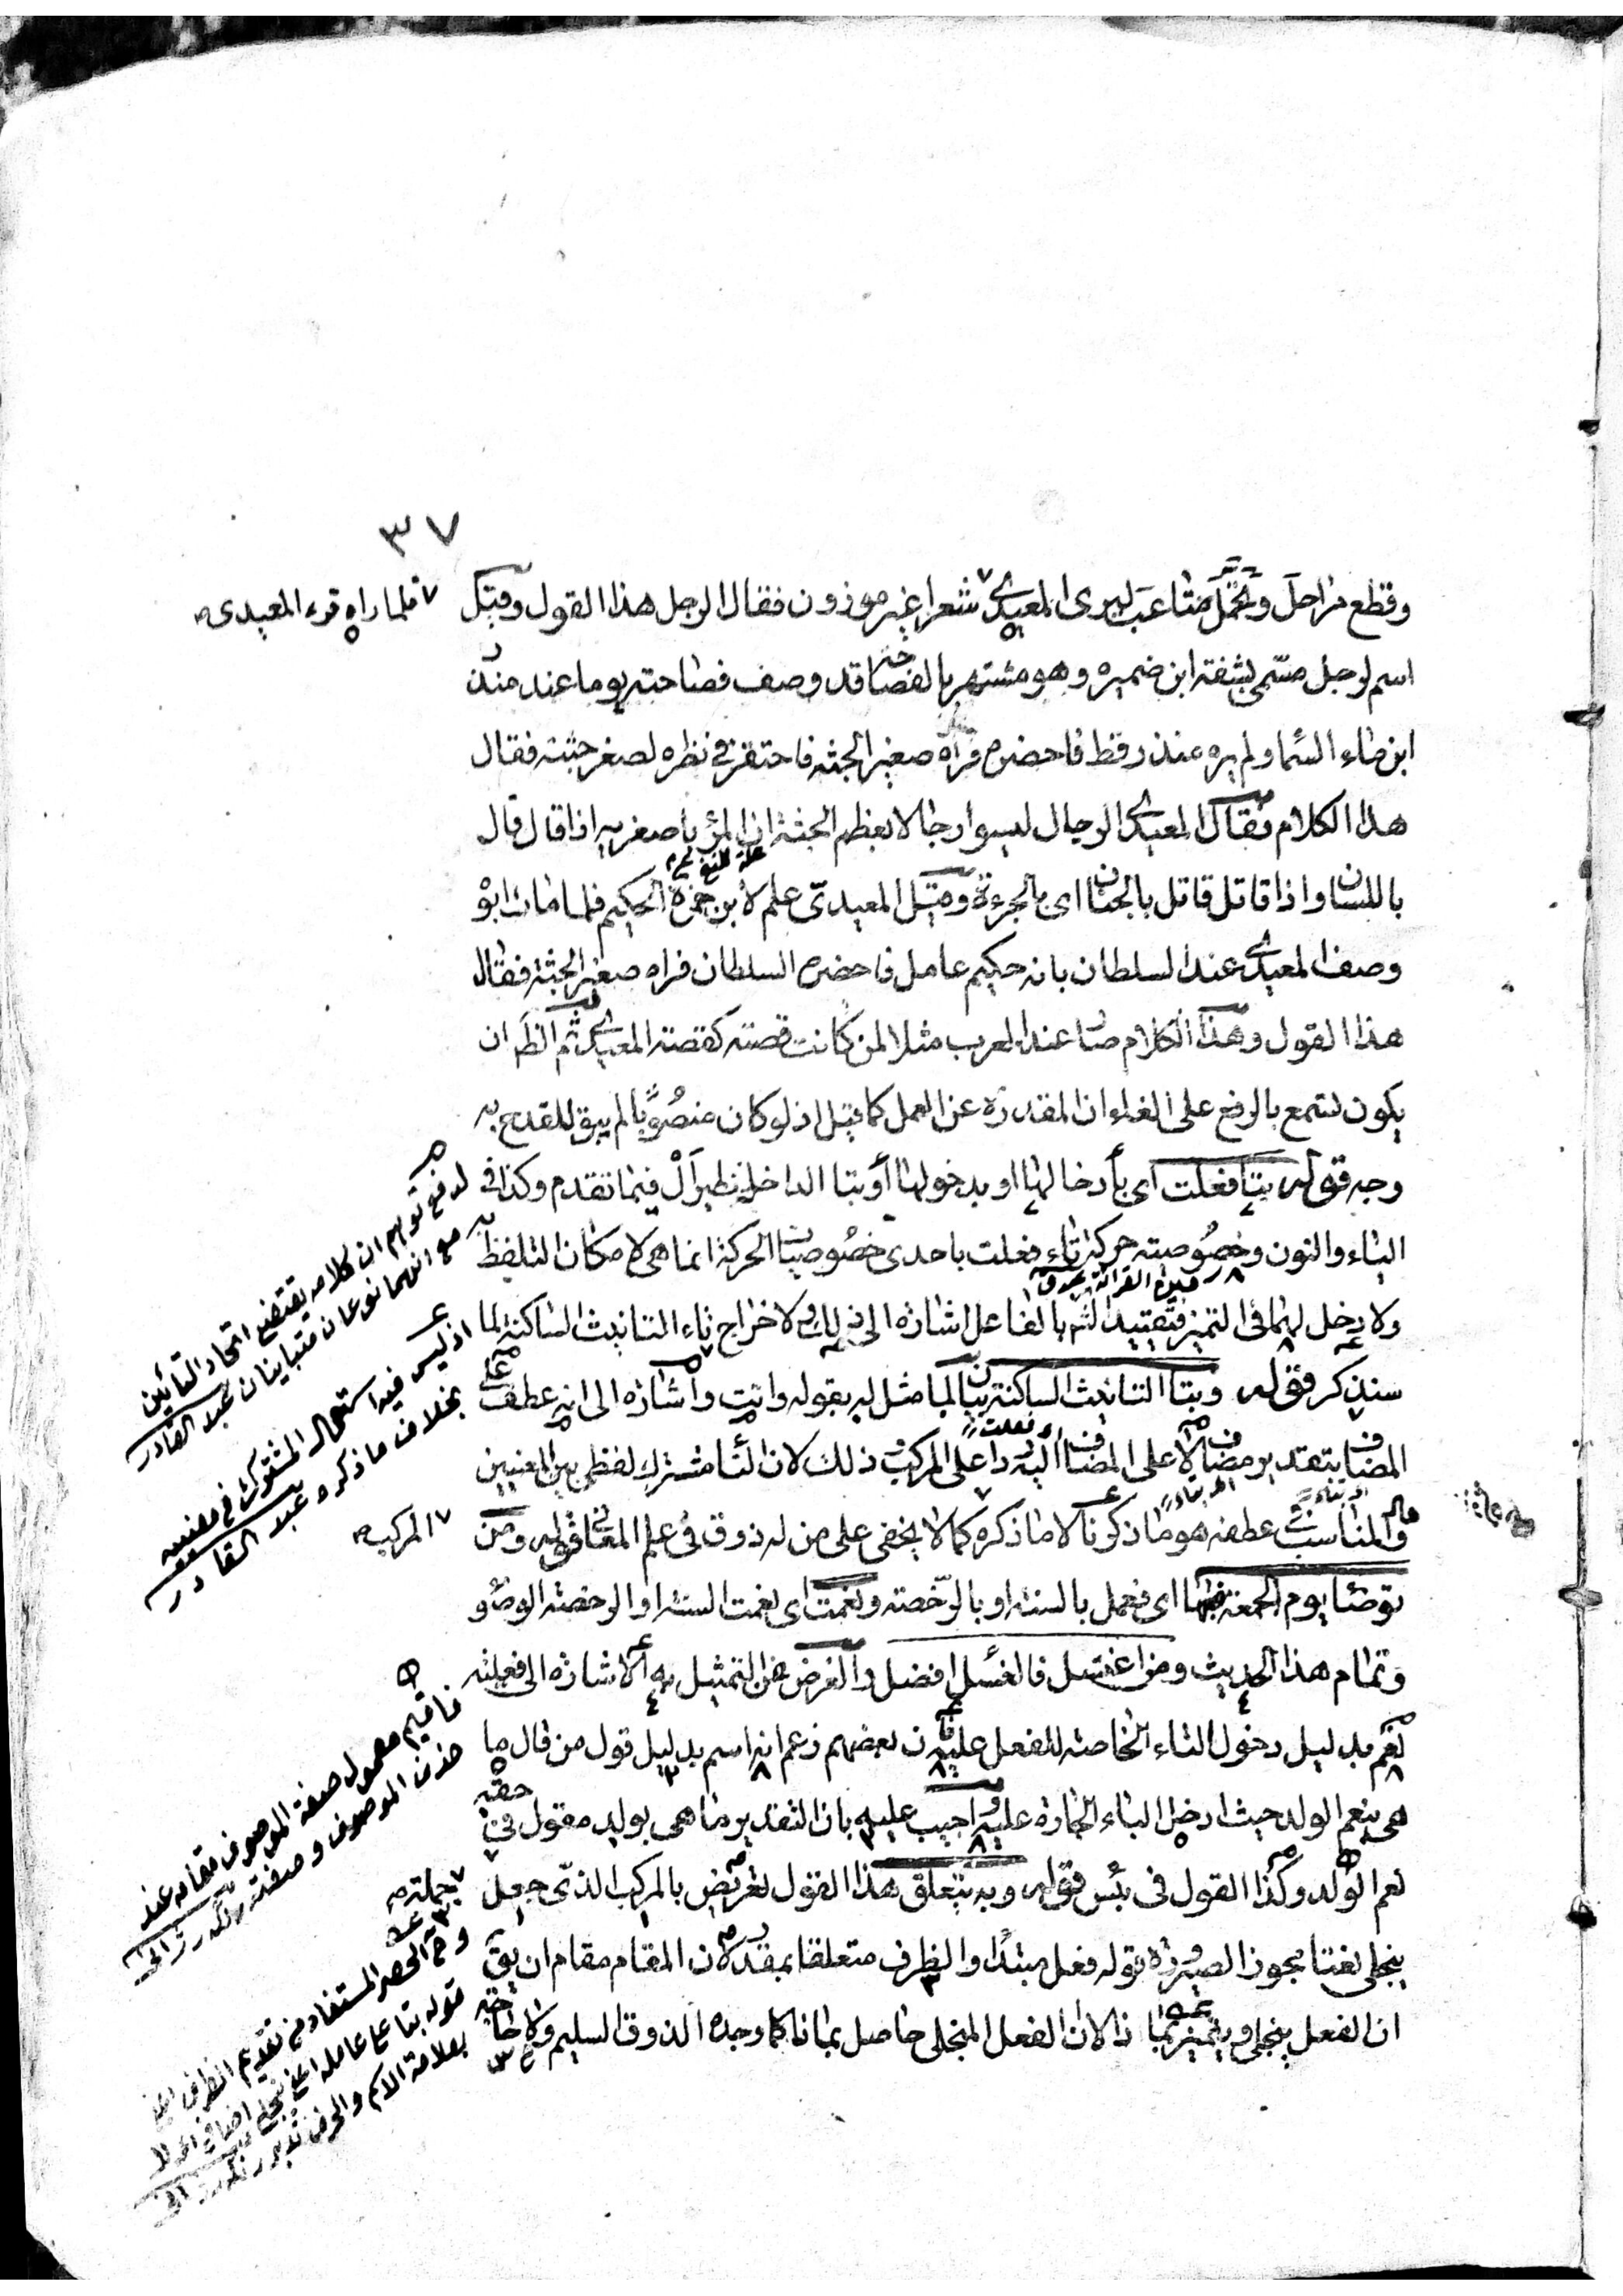 ٣٧
وقطع مراحل وتحمّل متاعب ليرى المعيدي شعرا غير موزون فقال الرجل هذا القول وقيل
٧ فلما راه قرء المعيدى
اسم لرجل مسمى بشقة ابن ضميره وهو مشتهر بالفصاحة قد وصف فصاحته يوما عند منذر
ابن ماء السما ولم يره منذر قط فاحضره فراه صغير الجثه فاحتقره في نظره لصغر جثته فقال
هذا الكلام فقال المعيدي الرجال ليسوا رجالا بعظم الجثة ان المرؤ باصغريه اذا قال قال
باللسان واذا قاتل قاتل بالجنان اى بالجرءة وقيل المعيدىّ علم لابن حمزة الحكيم فلما مات ابوْ
وصف المعيدي عند السلطان بانه حكيم عامل فاحضره السلطان فراه صغير الجثة فقال
هذا القول وهذا الكلام صار عند العرب مثلا لمن كانت قصته كقصته المعيدي ثم الظ ان
يكون لتسمع بالرفع على الغاء ان المقدرة عن العمل كما قيل اذ لو كان منصُوبًا لم يبق للقدح به
وجه قوله بتا فعلت اى بأدخالها او بدخولها أو بتا الداخلة نظير اَلْ فيما تقدم وكذا في
الياء والنون وخصُوصيته حركة تاء فعلت باحدى خصُوصيات الحركة انما هى لامكان التلفظ به
ولا دخل لهما فى التميز فتقييد الش بالفاعل اشارة الى ذلك ولاخراج تاء التانيث الساكنة لما
سنذكر قوله وبتا التانيث الساكنة بيان لما مثل له بقوله واتت واشارة الى انه عطف على
المضاف بتقدير مضاف لا على المضاف اليه ردا على المركب وذلك لان لتا مشترك لفظى بين المعنيين
والمناسب عطفه هو ما ذكرنا لا ما ذكره كما لا يخفى على من له ذوق فى علم المعانى قوله ومن
٧ المركب
توضا يوم الجمعة فبها اى فعمل بالسنة او بالرّخصة ونعمت اى نعمت السنة او الرخصة الوضو
وتمام هذا الحديث ومن اغتسل فالغسل افضل والغرض من التمثيل به الاشارة الى فعلية
نعم بدليل دخول التاء الخاصة للفعل عليه فان بعضهم زعم انه اسم بدليل قول من قال ما
هى بنعم الولد حيث ادخل الباء الجارة عليه واجيب عليه بان التقدير ما هى بولد مقول فى حقه
نعم الولد وكذا القول فى بئس قوله وبه يتعلق هذا القول تعريض بالمركب الذّى جعل
٧ جملة
ينجلى نعتا مجوزا لصيرورة قوله فعل مبتدا والظرف متعلقا بمقدر لان المقام مقام ان يق
ان الفعل ينجلى ويتميز بما ذا لان الفعل المنجلى حاصل بما ذا كما وجده الذوق السليم ولا حاجة
لدفع توهم ان كلامه يقتضى اتحاد التائين
مع انهما نوعان متباينان عبد القادر
اذ ليس فيه استعمال المشترك فى معنييه
بخلاف ما ذكره عبد القادر
فاقيم معمول صفة الموصوف مقامه عند
حذف الموصوف وصفته
وح الحصر المستفاد من تقديم الظرف
قوله بتا على عامله اعنى ينجلى اضافى
بعلامة الاسم والحرف تدبر